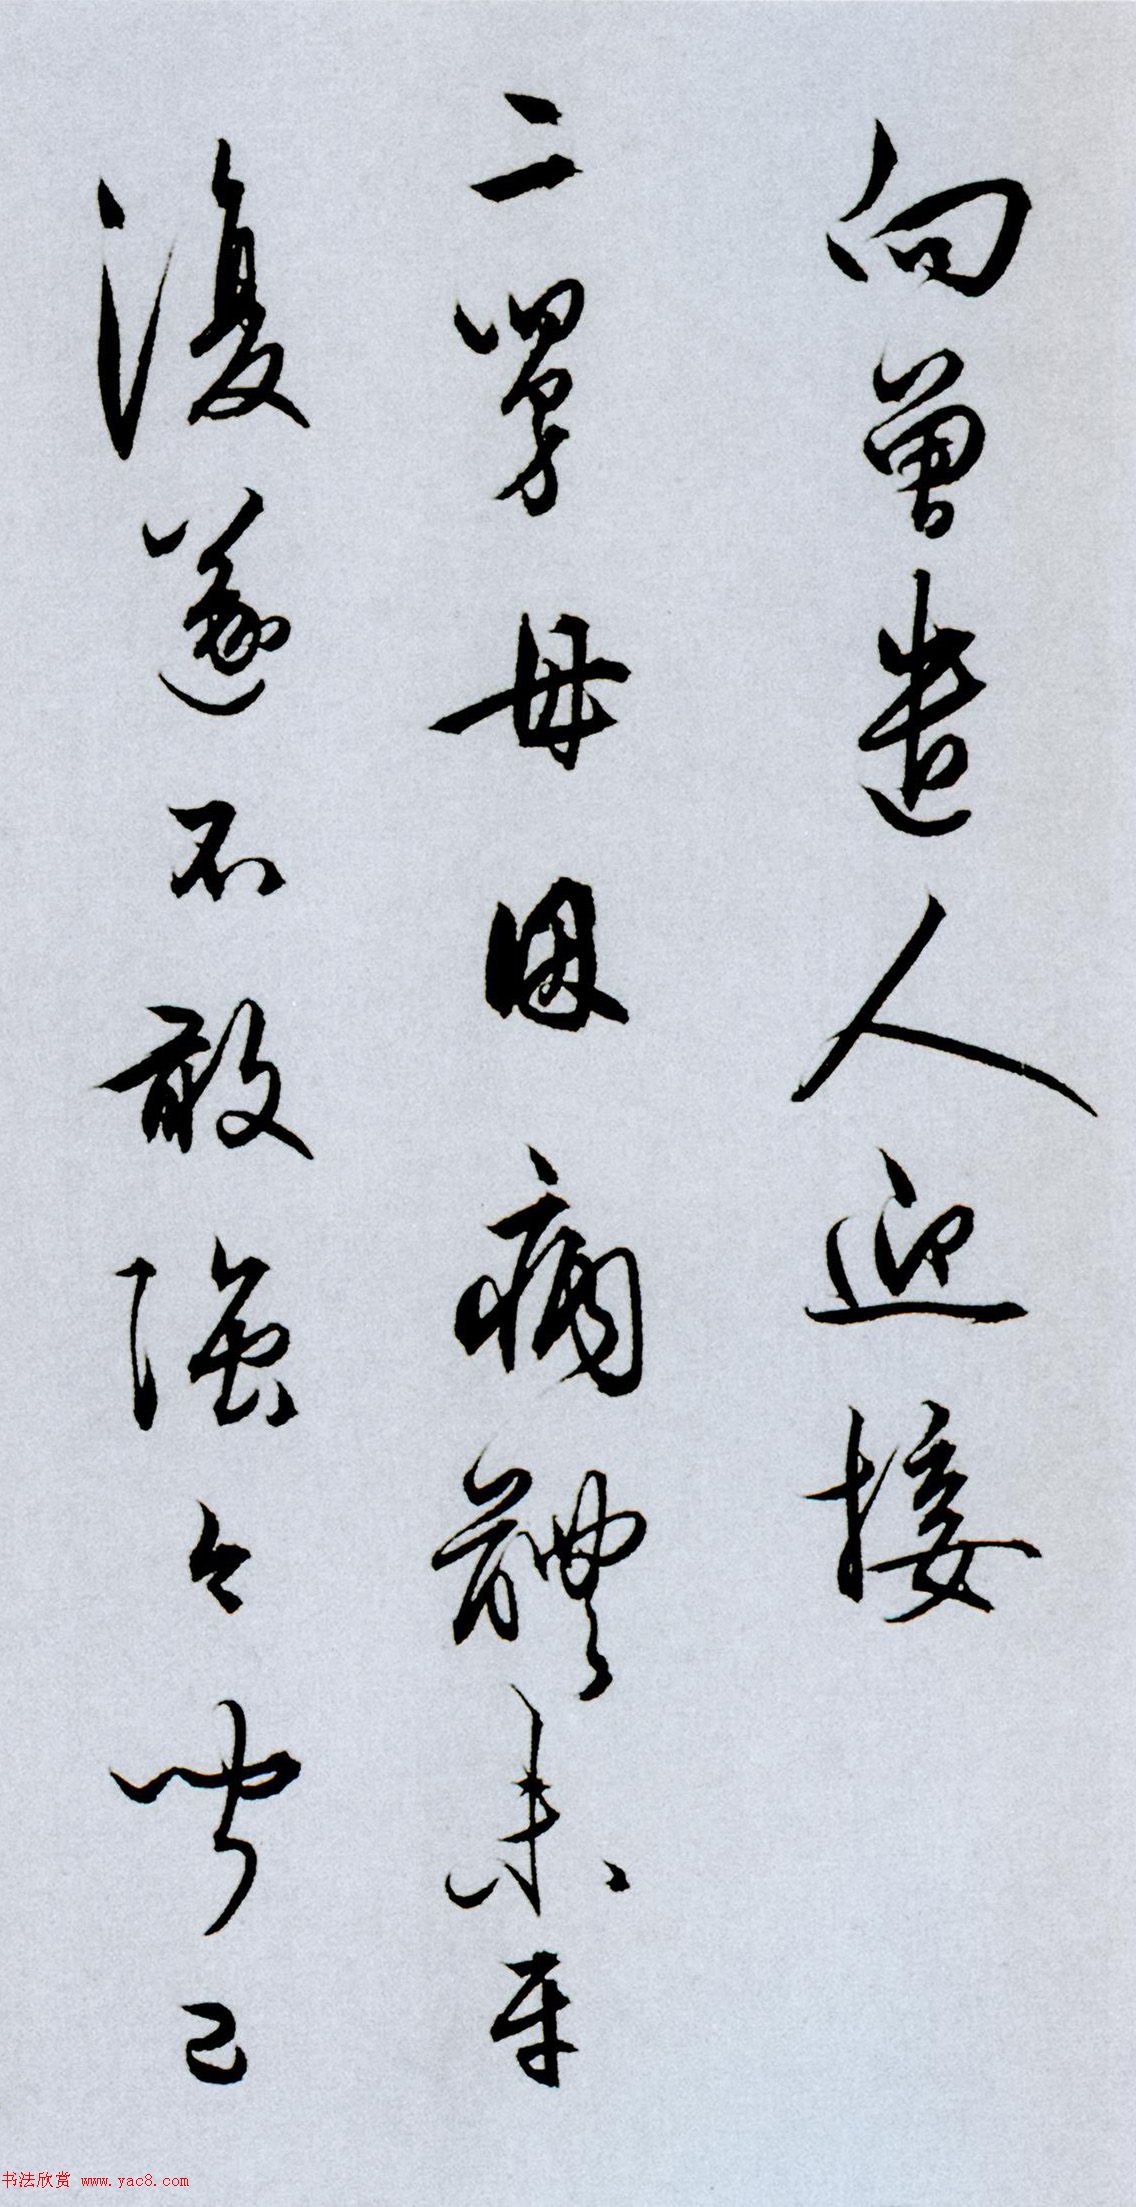 向曾遣人迎接
二舅母因病體未平
復遂不敢強今聞已
书法欣赏 www.yac8.com